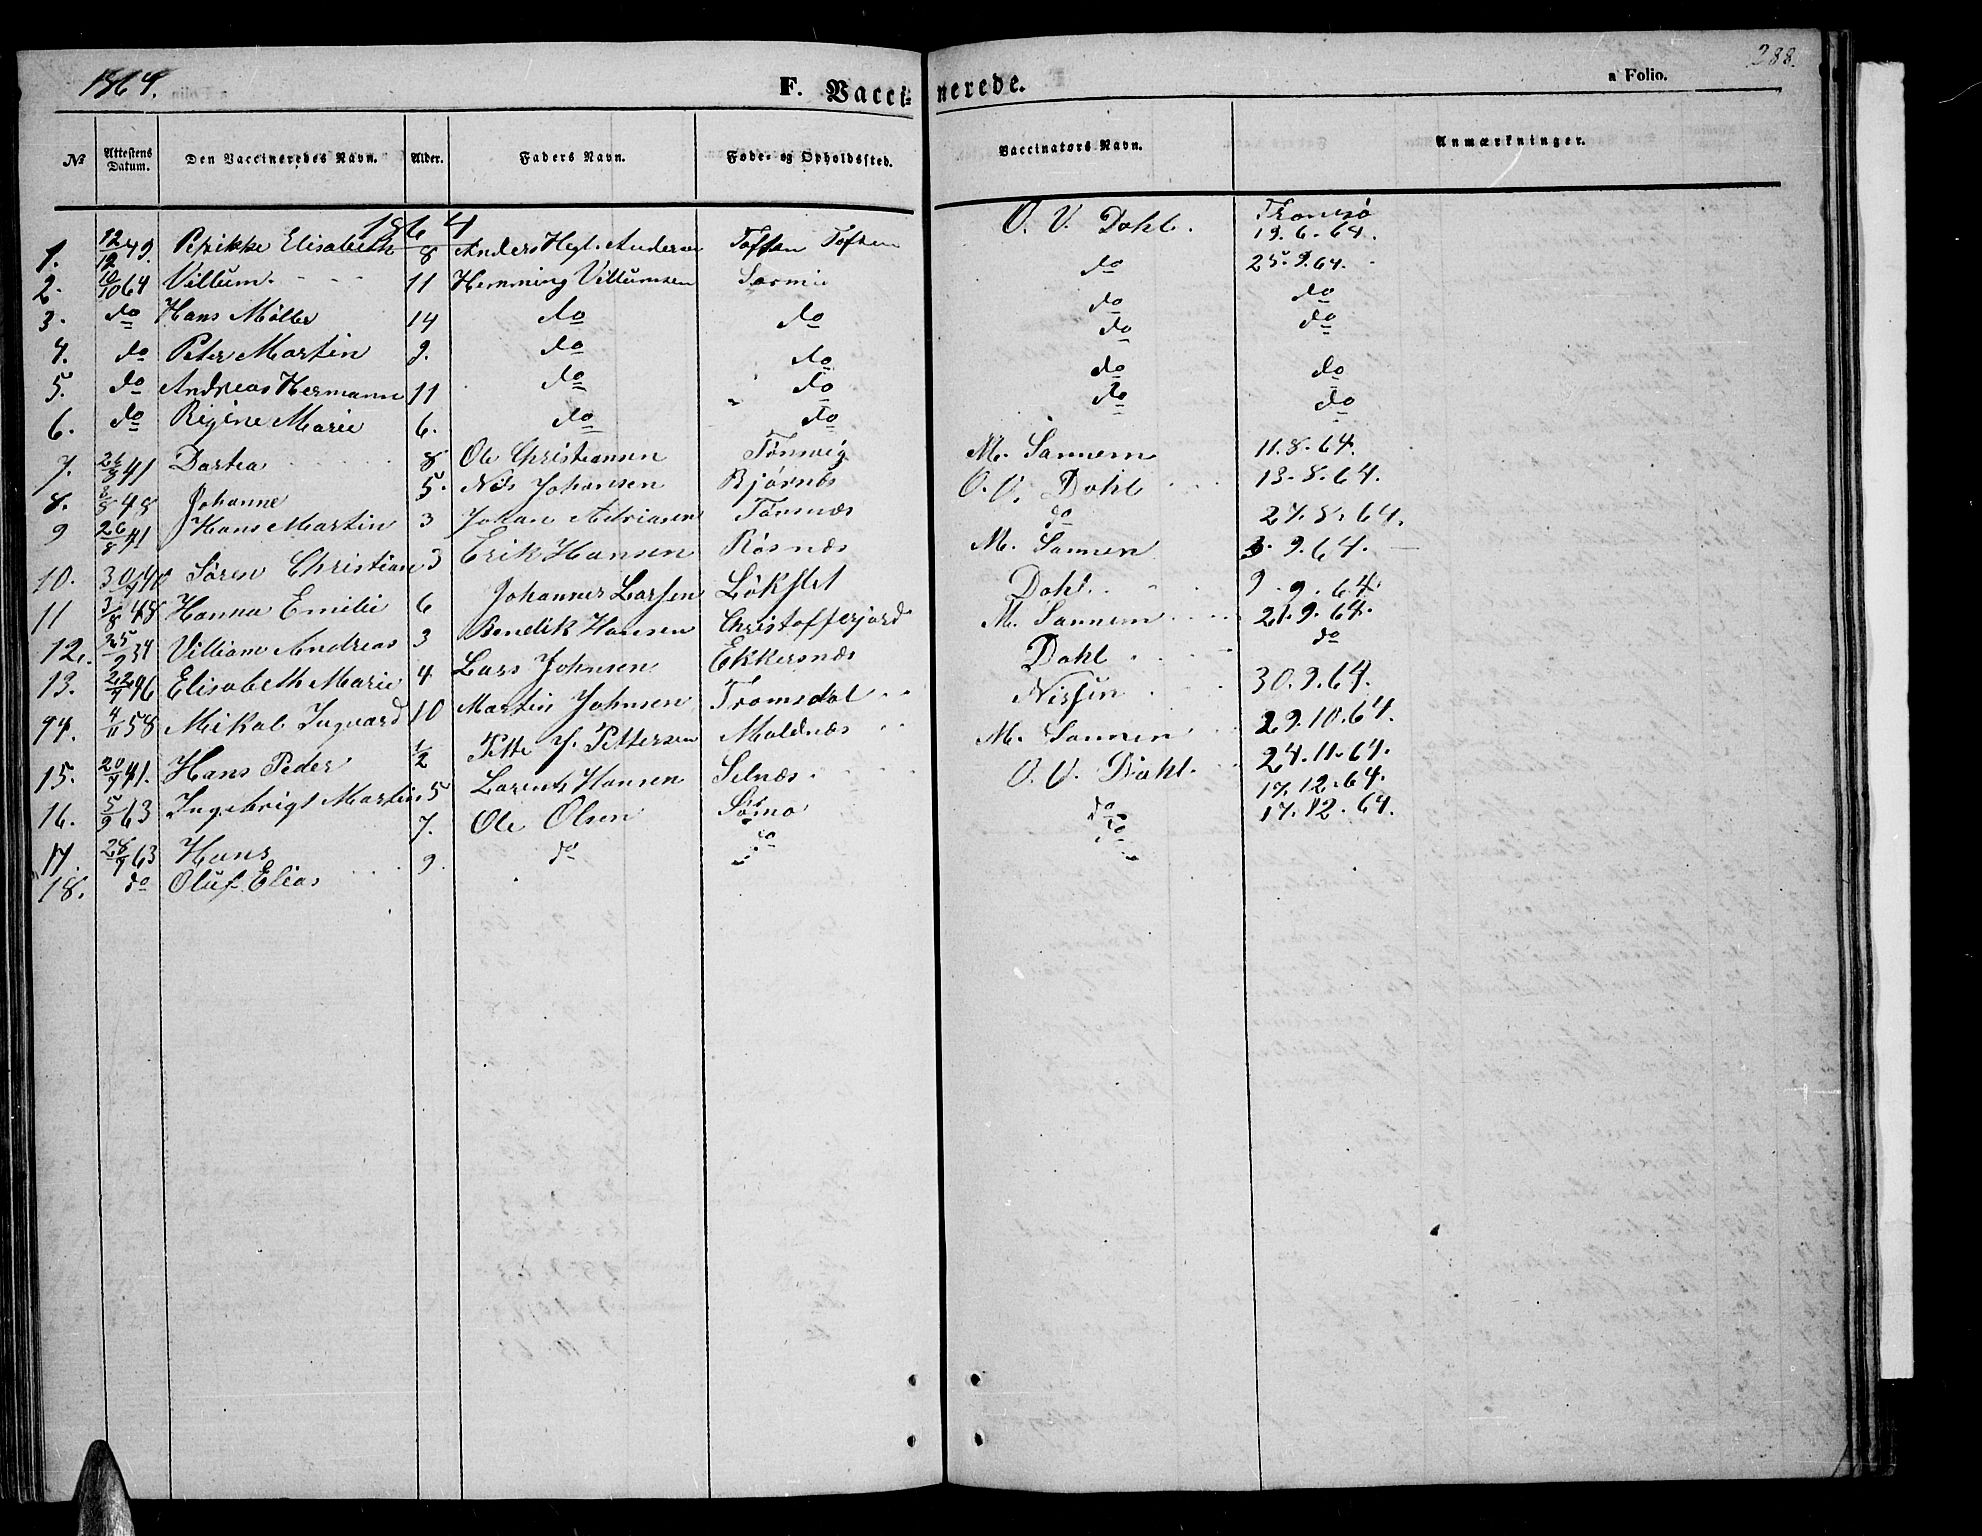 1864.
F. Vaccinerede.
a Folio.
288.
№ Attestens Datum. Den Vaccineredes Navn. Alder. Faders Navn. Føde- og Opholdssted. Vaccinators Navn. Anmærkninger.
1864
Tromsø
1. 12/12 49. Elisabeth 8 Anders Toften Toften O. V. Dahl. 19.6.64.
2. 10/10 64 Villum. 11 Hemming Villumsen do 25.9.64.
3. do Hans Møller 14 do do do do
4. do Peter Martin 9. do do do do
5. do Andreas Hermann 11 do do do do
6. do Regine Marie 6. do do do do
7. 26/8 41 Dortea 8 Ole Christiansen Tønsvig M. Sannem 11.8.64.
8. 3/8 48 Johanne 5. Nils Johansen Bjørnes O. V. Dahl 13.8.64.
9 26/8 41 Hans Martin 3 Johan Adriansen Tønsnæs do 27.8.64.
10. Søren Christian 3 Erik Hansen Røsnæs M. Sannem 3.9.64.
11 3/8 48 Hanna Emilie 6 Johannes Larsen Løkslet Dahl. 9.9.64
12. 25/9 34 Villiam Andreas 3 Bendik Hansen Christofferjord M. Sannem 21.9.64.
13. Elisabeth Marie 4 Lars Johnsen Ekkersnæs Dahl do
14. 58 Mikal Ingvard 10 Martin Johnsen Tromsdal Nissen 30.9.64.
15. 20/7 41. Hans Peder 1/2 Pettersen Maldnæs M. Sannem 29.10.64.
16. 5/9 63 Ingebrigt Martin 5 Lorents Hansen Selnæs O. V. Dahl. 24.11.64.
17. 28/7 63 Hans 7. Ole Olsen do 17.12.64.
18. do Oluf Elias 9. do do do 17.12.64.